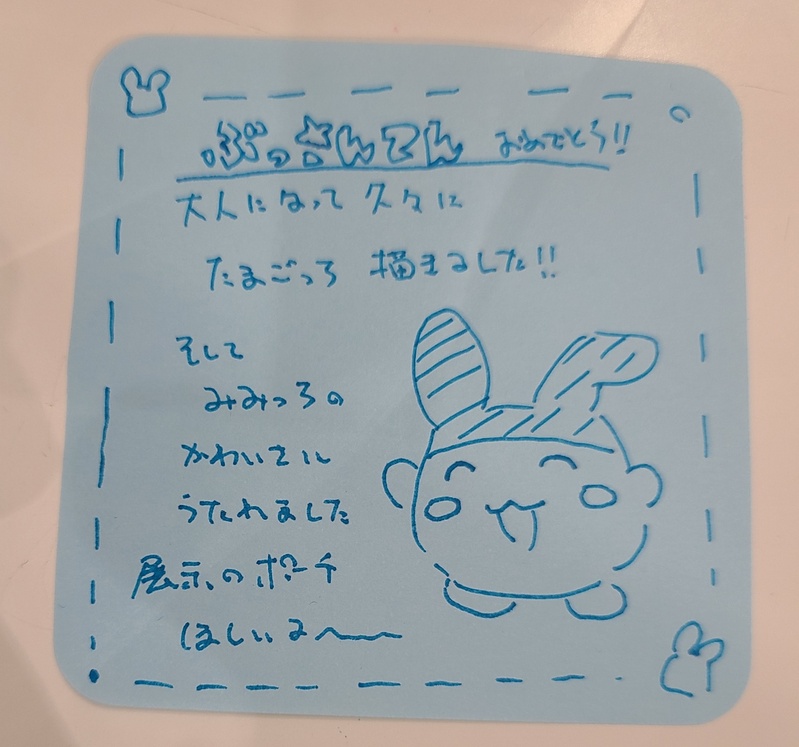 ぷっさんてん おめでとう!!
大人になって 久々に
たまごっち 描きました!!
そして
みみっちの
かわいさに
うたれました
展示のポーチ
ほしいよ〜